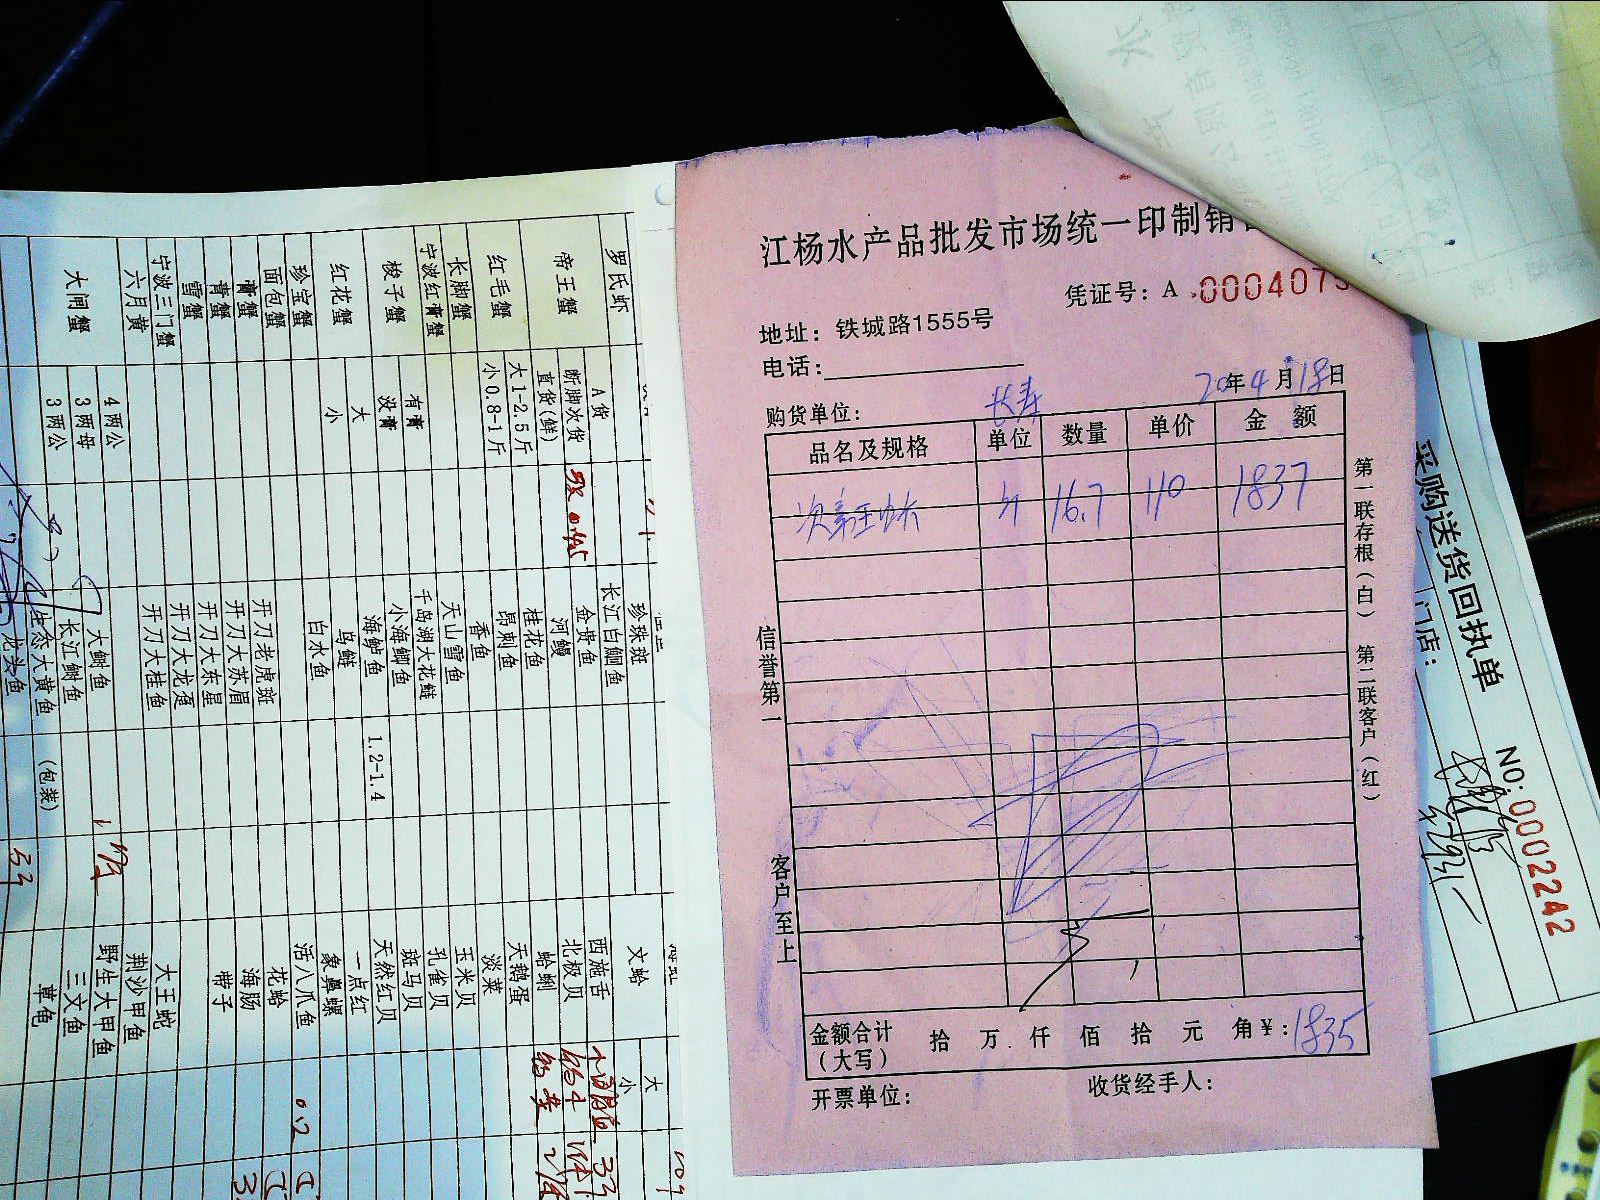 江杨水产品批发市场统一印制销
凭证号：A 000407
地址：铁城路1555号
电话：
20年4月18日
购货单位：长寿
品名及规格 单位 数量 单价 金额
次帝王蟹 斤 16.7 110 1837
金额合计（大写） 拾 万 仟 佰 拾 元 角 ¥：1835
开票单位： 收货经手人：
信誉第一 客户至上
第一联存根（白） 第二联客户（红）
采购送货回执单
NO：0002242
门店：
罗氏虾
A货
帝王蟹
断脚次货
直货(鲜)
红毛蟹
大1-2.5斤
小0.8-1斤
长脚蟹
宁波红膏蟹
梭子蟹
有膏
没膏
红花蟹
大
小
珍宝蟹
面包蟹
膏蟹
青蟹
雪蟹
宁波三门蟹
六月黄
大闸蟹
4两公
3两母
3两公
珍珠斑
长江白鮰鱼
金贵鱼
河鳗
桂花鱼
昂刺鱼
香鱼
天山雪鱼
千岛湖大花鲢
小海鲫鱼
海鲈鱼 1.2-1.4
乌鲢
白水鱼
开刀老虎斑
开刀大苏眉
开刀大东星
开刀大龙趸
开刀大桂鱼
大鲥鱼
长江鲥鱼
生态大黄鱼 (包装)
龙头鱼
文蛤
大
小
西施舌
北极贝
蛤蜊
天鹅蛋
淡菜
玉米贝
孔雀贝
斑马贝
天然红贝
一点红
象鼻螺
活八爪鱼 0.2
花蛤
海肠
带子
大王蛇
荆沙甲鱼
野生大甲鱼
三文鱼
草龟